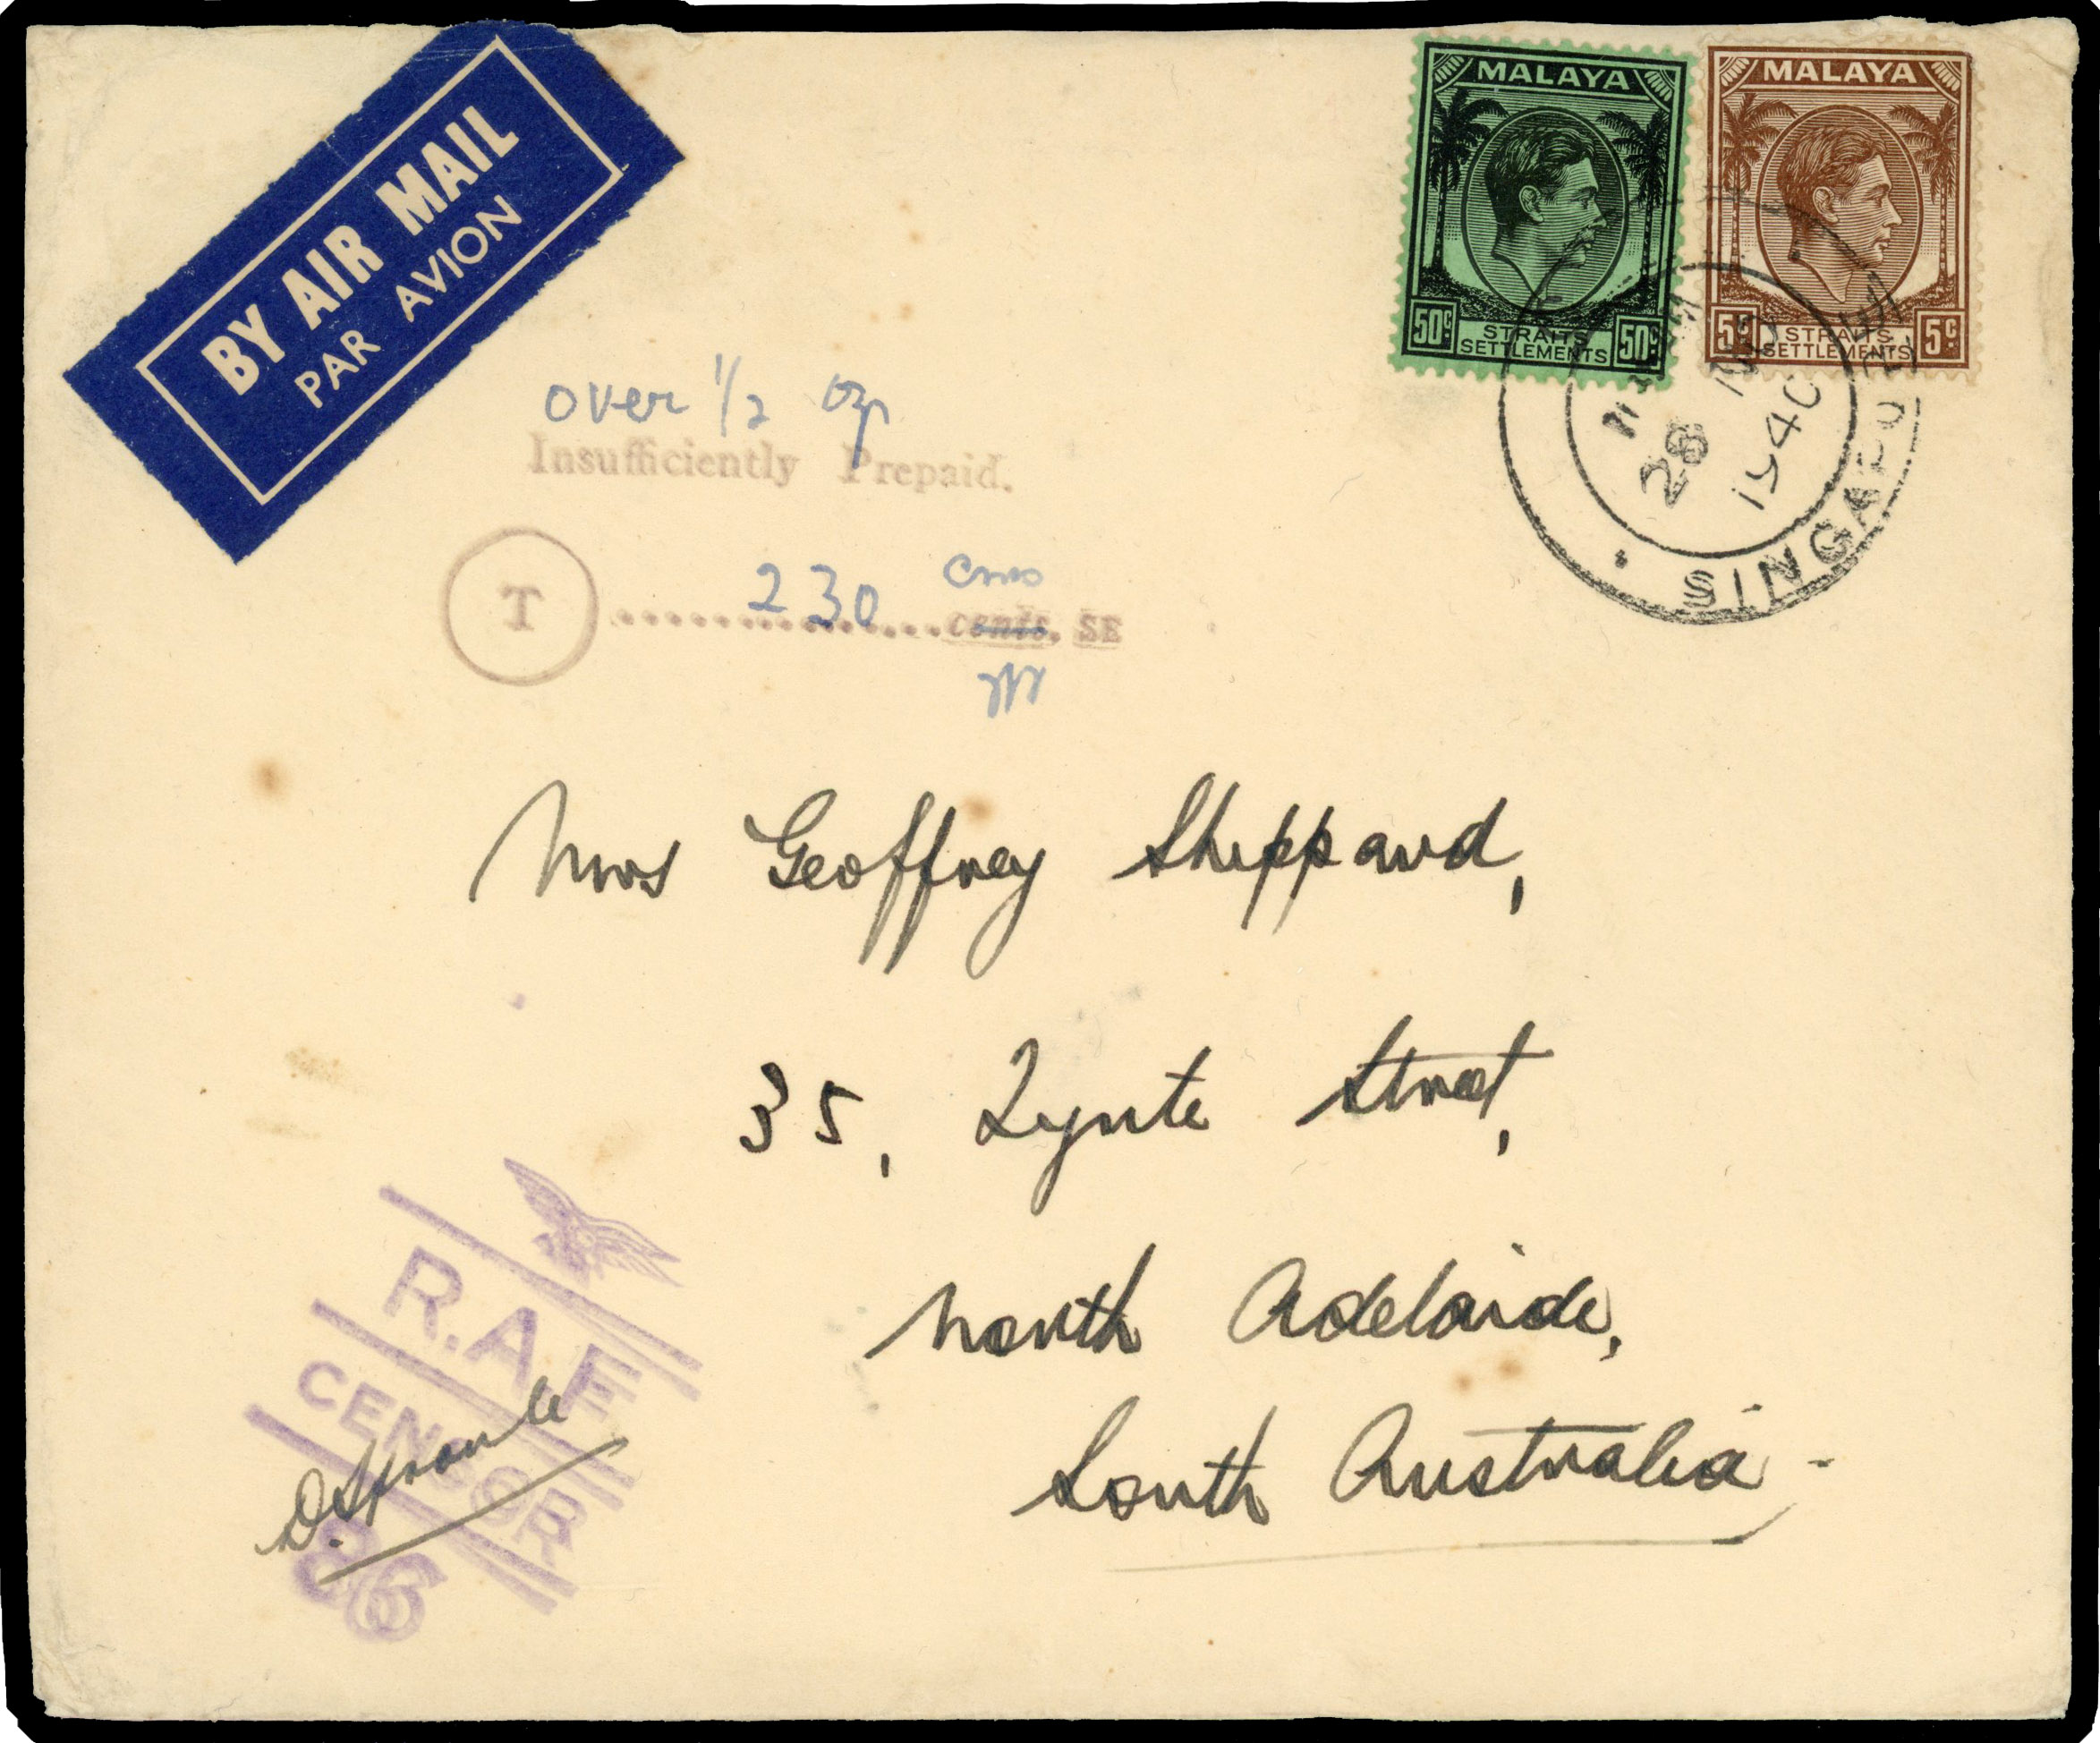 BY AIR MAIL
PAR AVION
MALAYA
50c STRAITS SETTLEMENTS 50c
MALAYA
5c STRAITS SETTLEMENTS 5c
28
1940
SINGAPORE
over 1/2 oz
Insufficiently Prepaid.
T 230 cms
cents. SE
Mrs Geoffrey Sheppard,
35, Lynte Street,
North Adelaide,
South Australia -
R.A.F
CENSOR
86